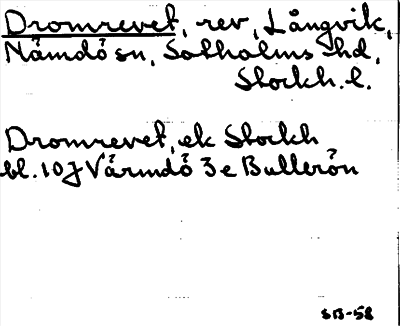 Dromrevet, rev, Långvik,
Nämdö sn, Sotholms hd,
Stockh. l.
Dromrevet, ek Stockh
bl. 10 J Värmdö 3 e Bullerön
SB-58